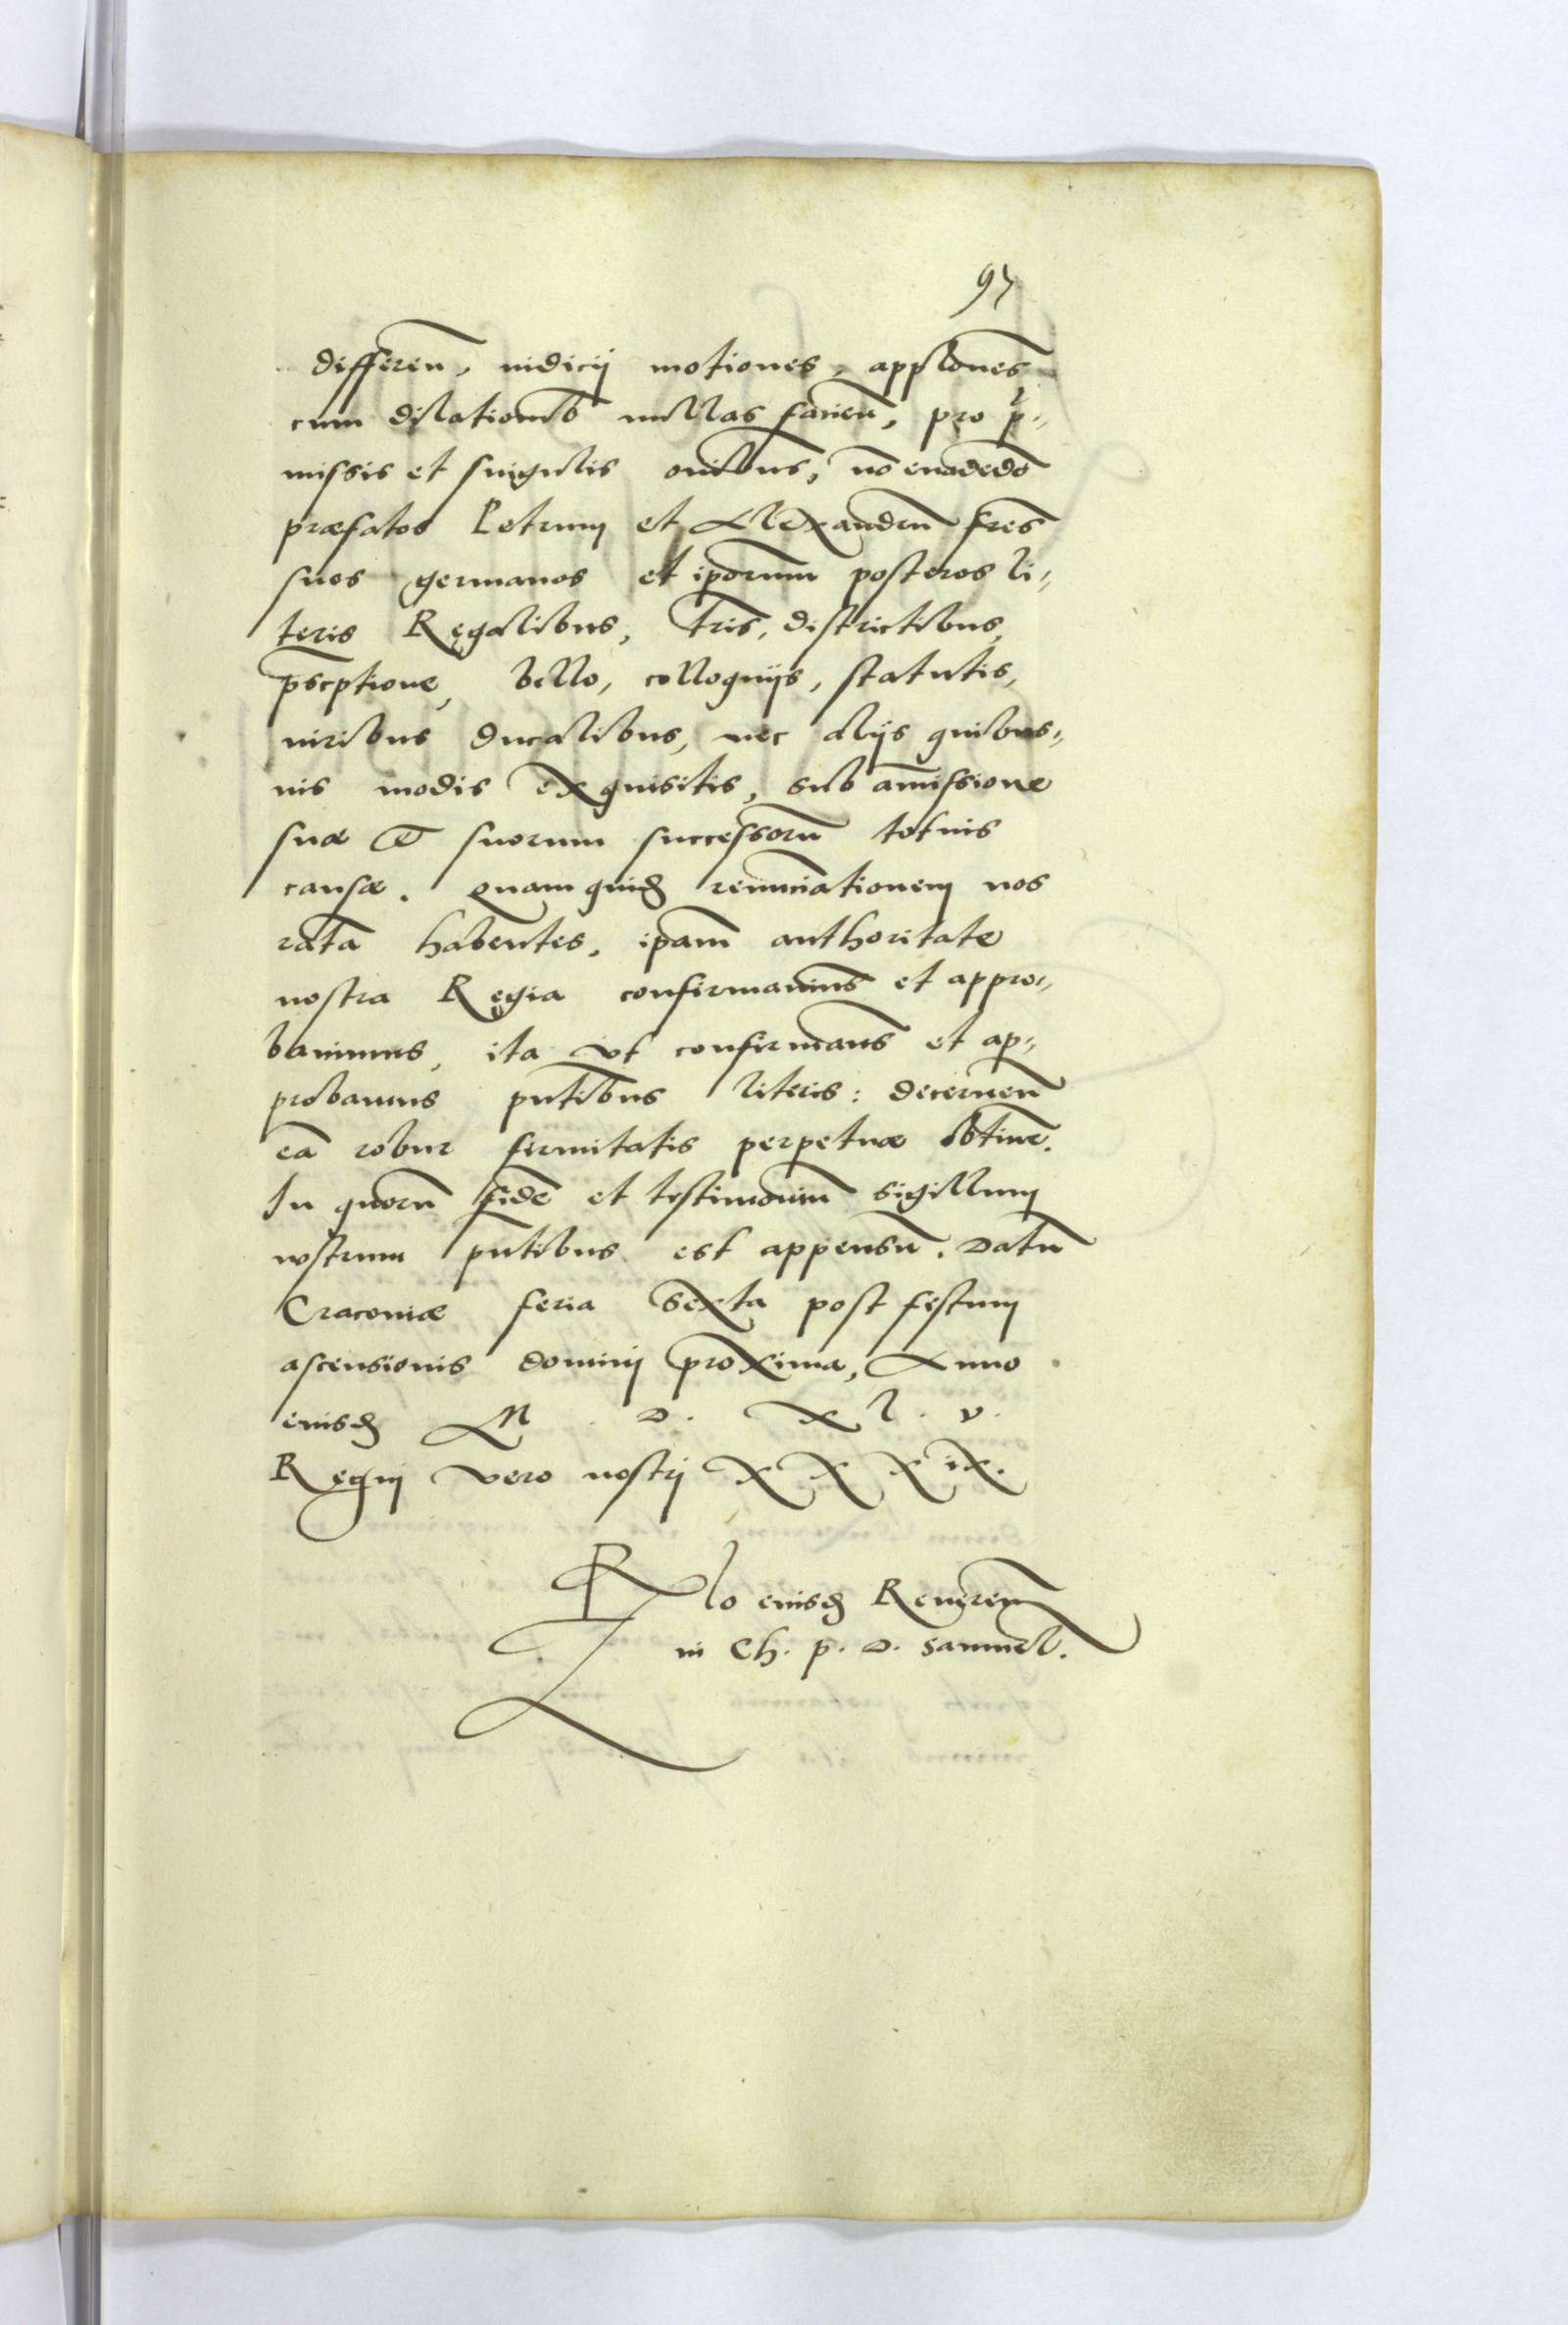 97
differen̄, iudicij motiones, appl̄ones
cum dilationib̄ nullas facien̄, pro p̄=
missis et singulis oīnbus, nō euadēdo
præfatos Petrum et Alexandrū fr̄es
suos germanos et ip̄orum posteros li=
teris Regalibus, Tr̄is, districtibus,
p̄scptione, bello, colloquijs, statutis,
iuribus ducalibus, nec alijs quibus=
uis modis exquisitis, sub amissione
suæ et suorum successorū totius
causæ. Quam quidē renunciationem nos
ratā habentes, ip̄am authoritate
nostra Regia confirmauim̄s et appro=
bauimus, ita vt confirmam̄s et ap=
probamus pn̄tibus literis: decernen̄
eā robur firmitatis perpetuæ obtine͂.
In quorū fidē et testimoniū sigillum
nostrum pn̄tibus est appensū. Datū
Cracouiæ feria Sexta post festum
ascensionis domini proxima, Anno
eiusdē M . D . X l . v .
Regni vero nostri X X X ix.
R͂lo eiusdē Reueren̄
in Ch. p. D. Samuel.